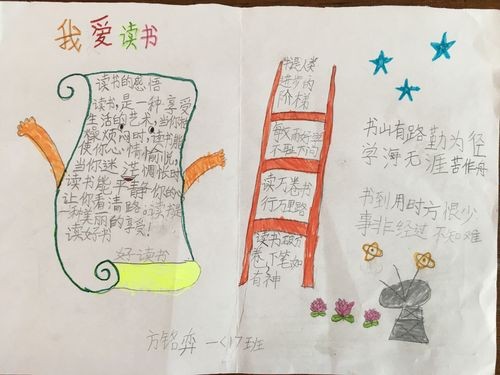 我爱读书
读书的感悟
读书,是一种享受
生活的艺术,当你
烦闷时,读书能
使你心情愉悦,
当你迷惘时
读书能平静你的心,
让你看清路
一种美丽的享受!
读好书
好读书
书是人类
进步的
阶梯
敏而好学
不耻下问
读万卷书
行万里路
读书破万
卷,下笔如
有神
书山有路勤为径
学海无涯苦作舟
书到用时方恨少
事非经过不知难
方铭弈 一<17班